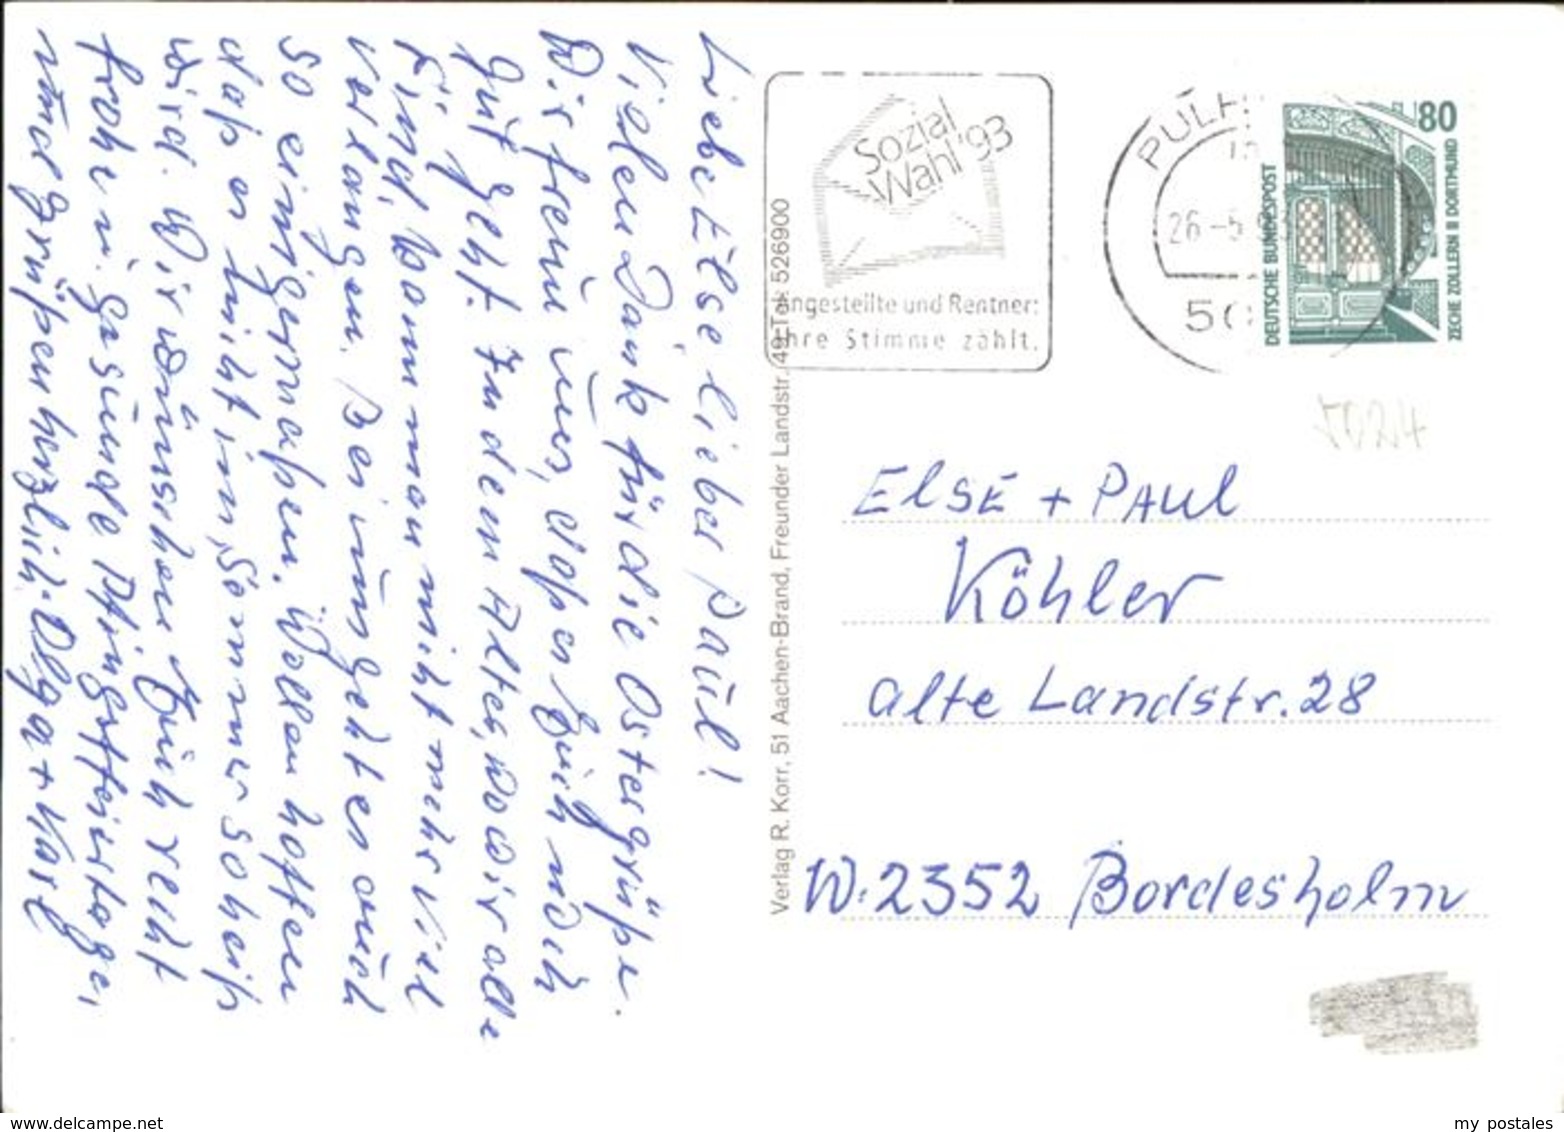 Liebe Else lieber Paul!
Vielen Dank für die Ostergrüße.
Wir freuen uns, daß es Euch noch
gut geht. In dem Alter, wo wir alle
sind, kann man nicht mehr viel
verlangen. Bei uns geht es auch
so einigermaßen. Wollen hoffen
daß es nicht im Sommer so heiß
wird. Wir wünschen Euch recht
frohe u. gesunde Pfingstfeiertage,
und grüßen herzlich Olga + Karl
Verlag R. Korr, 51 Aachen-Brand, Freunder Landstr. 49, Tel. 526900
Sozial
Wahl '93
Angestellte und Rentner:
Ihre Stimme zählt.
PULH
26.-5.
50
80
DEUTSCHE BUNDESPOST
ZECHE ZOLLERN II DORTMUND
5024
ElSE + PAUl
Köhler
alte Landstr. 28
W-2352 Bordesholm
www.delcampe.net
my postales